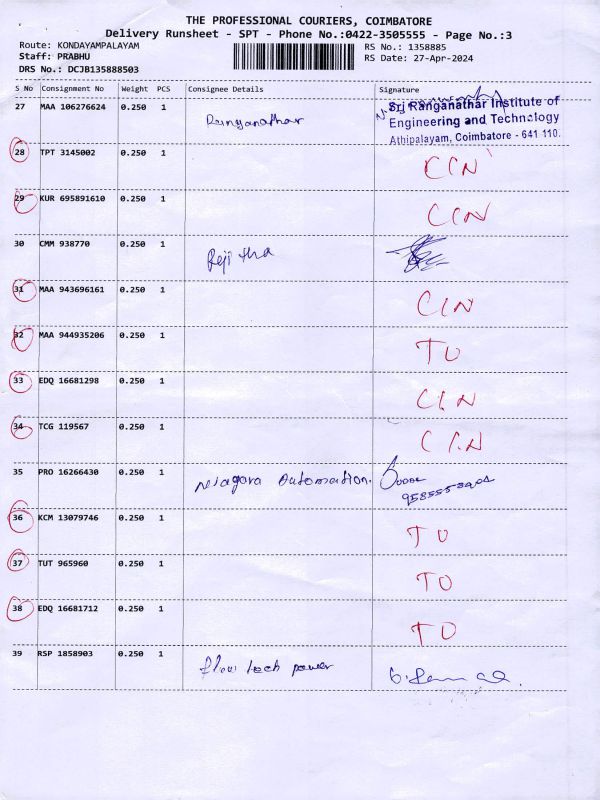 THE PROFESSIONAL COURIERS, COIMBATORE
Delivery Runsheet - SPT - Phone No.:0422-3505555 - Page No.:3
Route: KONDAYAMPALAYAM
Staff: PRABHU
DRS No.: DCJB135888503
RS No.: 1358885
RS Date: 27-Apr-2024
S No Consignment No Weight PCS Consignee Details Signature
27 MAA 106276624 0.250 1 Ranganathar
Sri Ranganathar Institute of
Engineering and Technology
Athipalayam, Coimbatore - 641 110.
28 TPT 3145002 0.250 1 CIN
29 KUR 695891610 0.250 1 CIN
30 CMM 938770 0.250 1 Rejitha
31 MAA 943696161 0.250 1 CIN
32 MAA 944935206 0.250 1 TO
33 EDQ 16681298 0.250 1 CIN
34 TCG 119567 0.250 1 CIN
35 PRO 16266430 0.250 1 Niagara Automation.
36 KCM 13079746 0.250 1 TO
37 TUT 965960 0.250 1 TO
38 EDQ 16681712 0.250 1 TO
39 RSP 1858903 0.250 1 flow tech power